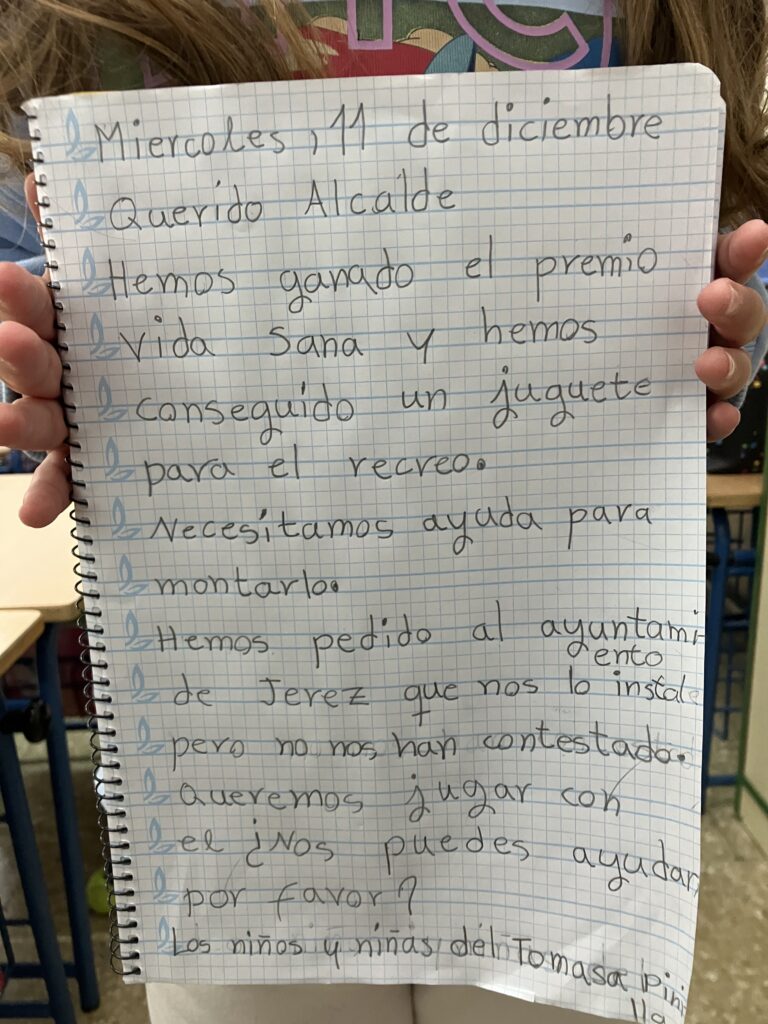 Miercoles, 11 de diciembre
Querido Alcalde
Hemos ganado el premio
vida sana y hemos
conseguido un juguete
para el recreo.
Necesitamos ayuda para
montarlo.
Hemos pedido al ayuntami
ento
de Jerez que nos lo instale
pero no nos han contestado.
Queremos jugar con
el ¿Nos puedes ayudar
por favor?
Los niños y niñas del Tomasa Pini
lla